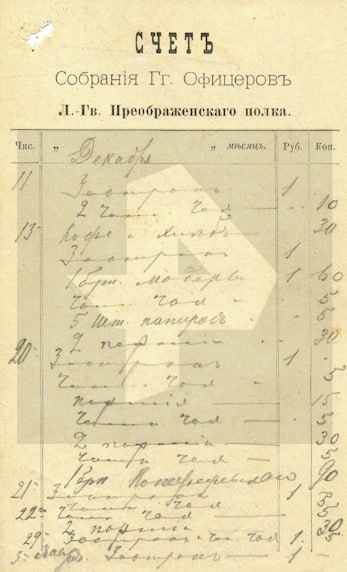 СЧЕТЪ
Собранія Гг. Офицеровъ
Л.-Гв. Преображенскаго полка.
Чис. „ Декабрь „ мѣсяцъ. Руб. Коп.
11 Завтракъ 1
2 чаш. чая 10
13 Кофе с хлѣб 30
Завтракъ 1
1 бут. мадеры 1 60
чаш. чая 5
5 шт. папиросъ 5
2 порціи 30
20 Завтракъ 1
чаш. чая 5
порція 15
чаша чая 5
2 порціи 30
чаша чая 5
90
21 Завтракъ 1
22 чаша чая 5
2 порціи 30
29 Завтракъ чая 1 5
3 Завтракъ 1